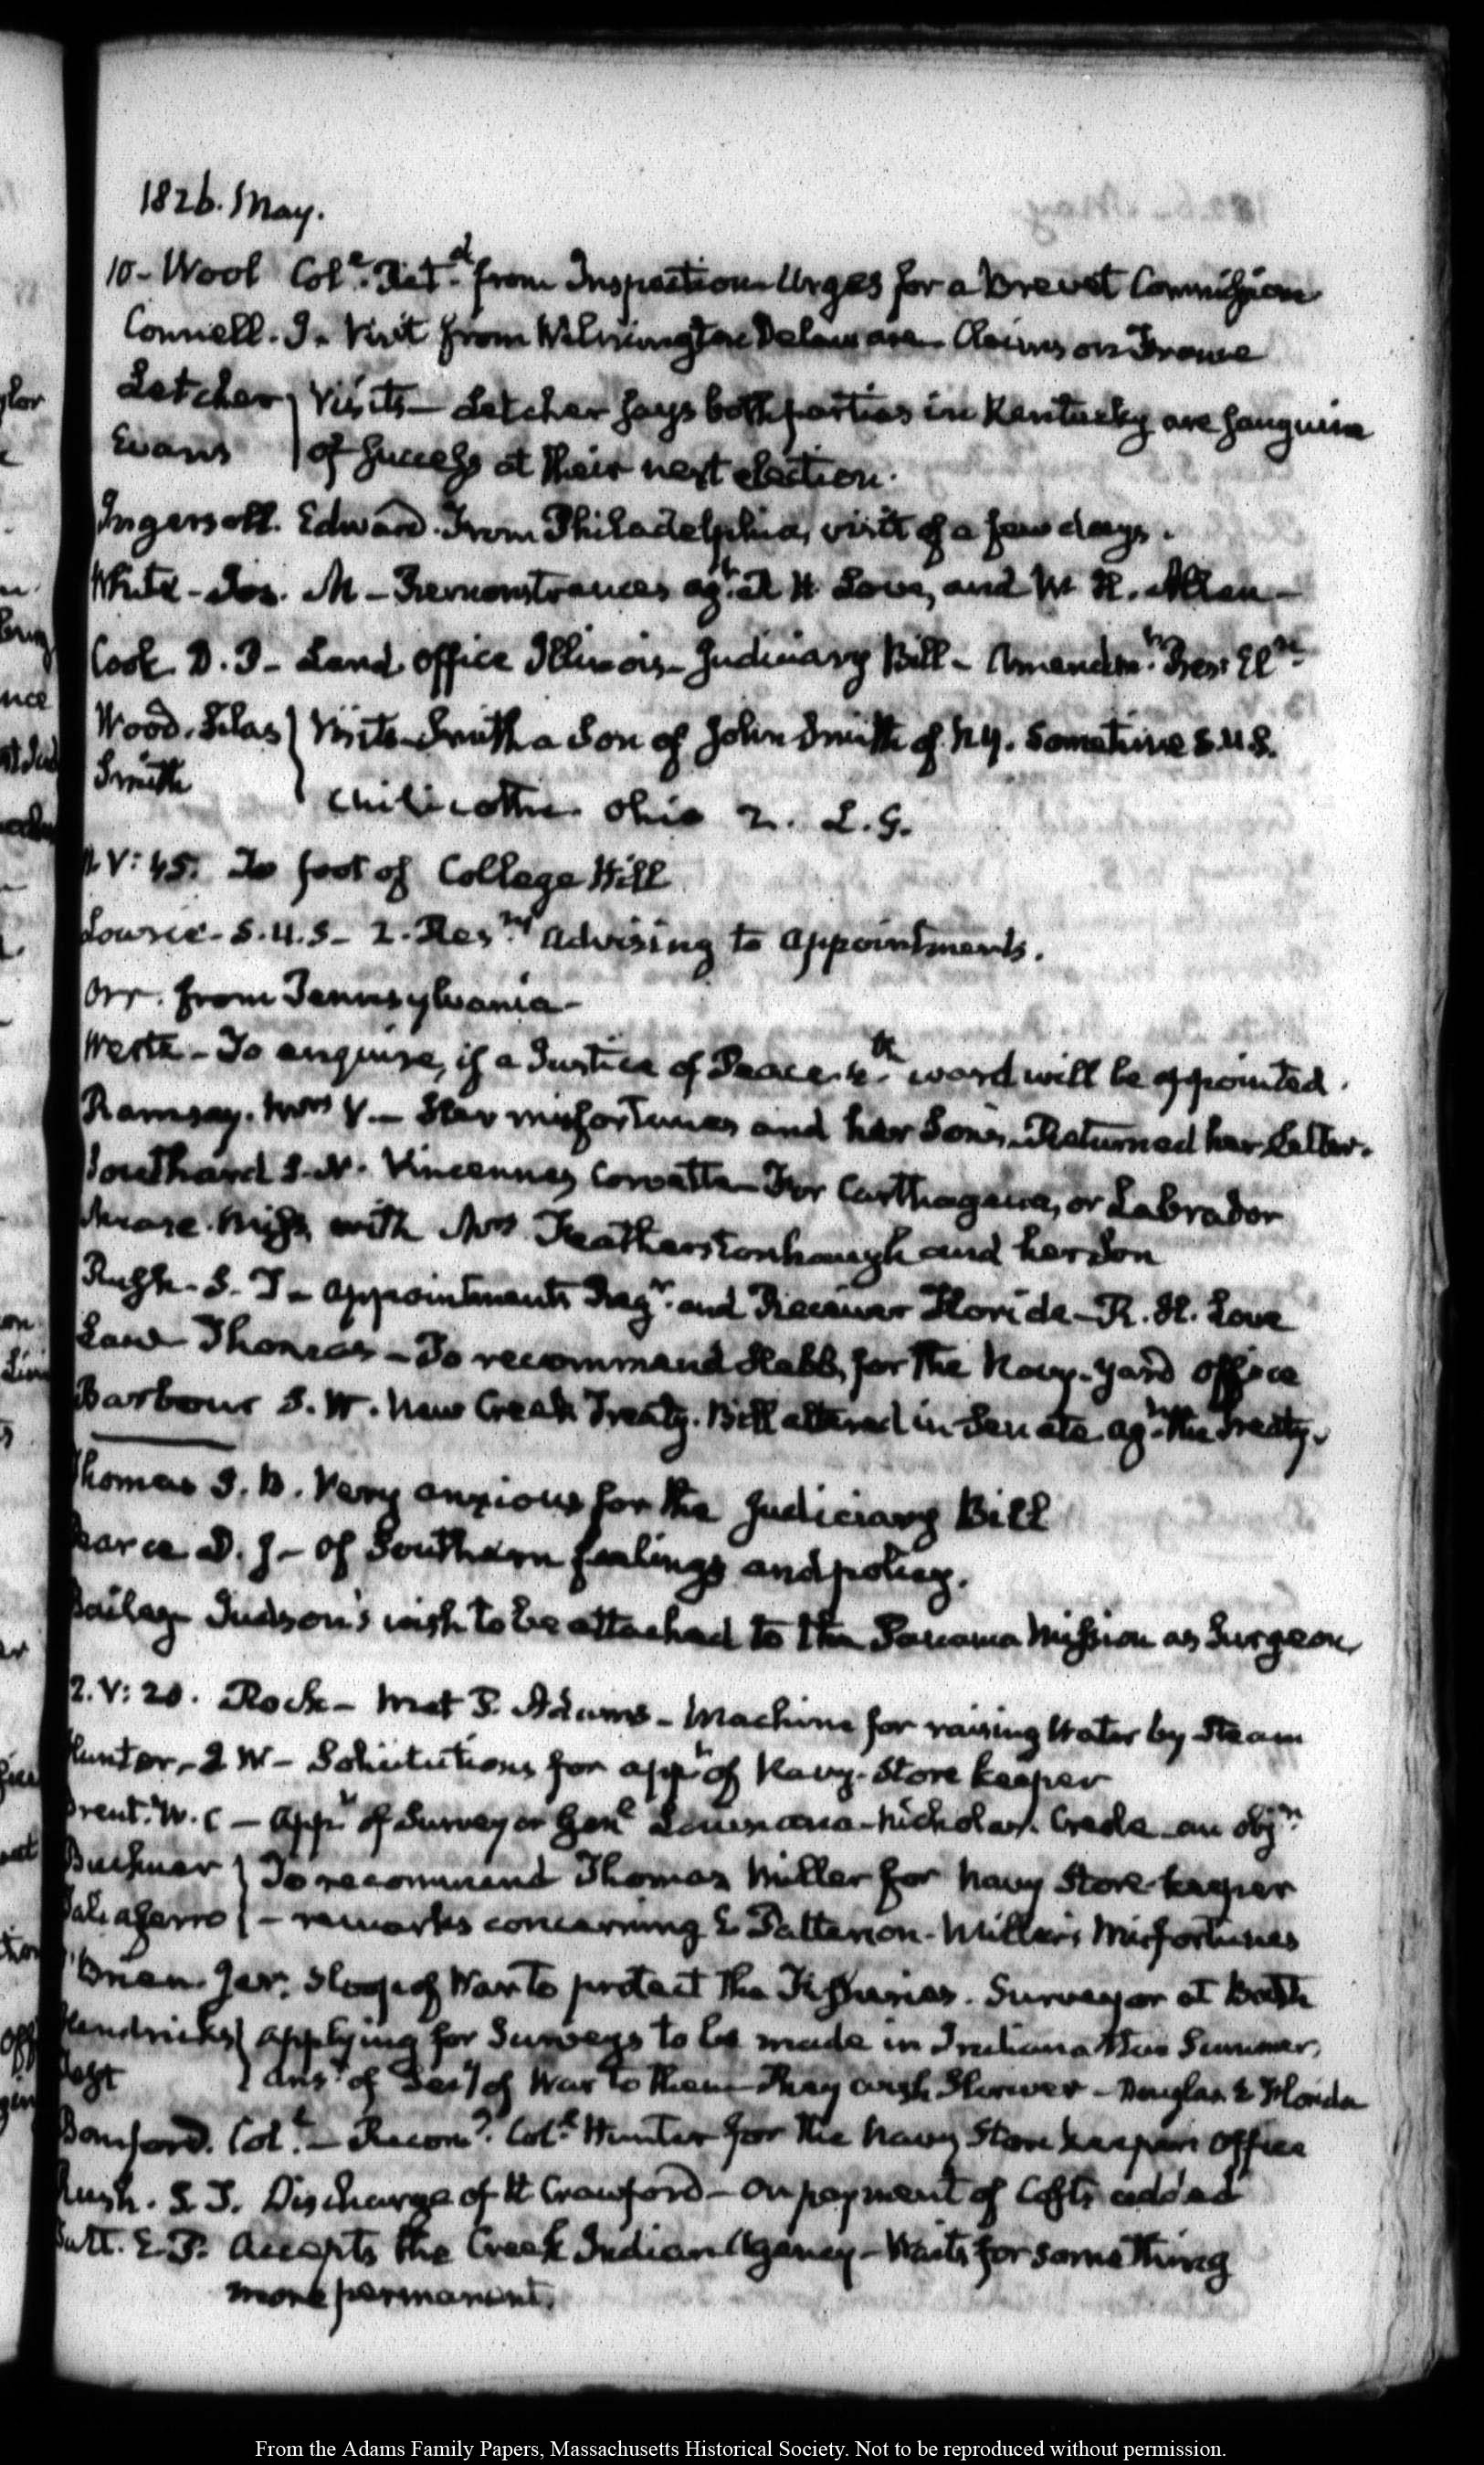 1826. May.
10- Wool Col.l Ret.d from Inspection Urges for a Brevet Commission
Connell. J. Visit from Wilmington Delaware Claims on France
Letcher } Visits- Letcher says both parties in Kentucky are sanguine
Evans } of success at their next election.
Ingersoll. Edward. From Philadelphia, visit of a few days.
White- Jos. M- Remonstrances ag.t R H Love, and W. H. Allen-
Cook D. P- Land office Illinois- Judiciary Bill- Amendm.t Pres. El.n
Wood. Silas } Visits- Smith a Son of John Smith of N.Y. Sometime S.U.S.
Smith } Chilicothe Ohio L. G.
V: 45. To foot of College Hill
Lowrie- S.U.S- 2. Res.ns advising to appointments.
Orr. from Pennsylvania-
To enquire, if a Justice of Peace 4.th ward will be appointed.
Ramsay. Mrs V.- Her misfortunes and her Son's- Returned her Letter.
Southard S.N. Vincennes Corvette- For Carthagena, or Labrador
Miss with Mrs Featherstonhaugh and her Son
Rush- S. T- appointments Reg.r and Receiver Florida- R. H. Love
Law Thomas- To recommend for the Navy-Yard office
Barbour S. W. New Creek Treaty. Bill altered in Senate ag.t the Treaty.
Thomas J. B. Very anxious for the Judiciary Bill
Pearce D. J- Of Southern feelings and policy.
Bailey Judson's wish to be attached to the Panama Mission as Surgeon
V: 20. Rock- Met T. Adams- Machine for raising Water by Steam
Hunter- W- Solicitations for app.t of Navy-Store keeper
Brent. W. C- App.t of Surveyor Gen.l Louisiana- Nicholas. Creole an obj.n
Buckner } To recommend Thomas Miller for Navy Store-keeper
Taliaferro } - remarks concerning Patterson- Miller's Misfortunes
O'Brien Jer. Sloop of War to protect the Fisheries. Surveyor at Bath
Hendricks } Applying for Surveys to be made in Indiana this Summer,
} Ans.r of Sec.y of War to them They wish Shriver- Douglas & Florida
Bomford. Col.l- Recom.d Col.l Hunter for the Navy Store keeper's Office
Rush. S T. Discharge of H Crawford- On payment of Costs added
E. P. Accepts the Creek Indian Agency- Waits for something
more permanent.
From the Adams Family Papers, Massachusetts Historical Society. Not to be reproduced without permission.